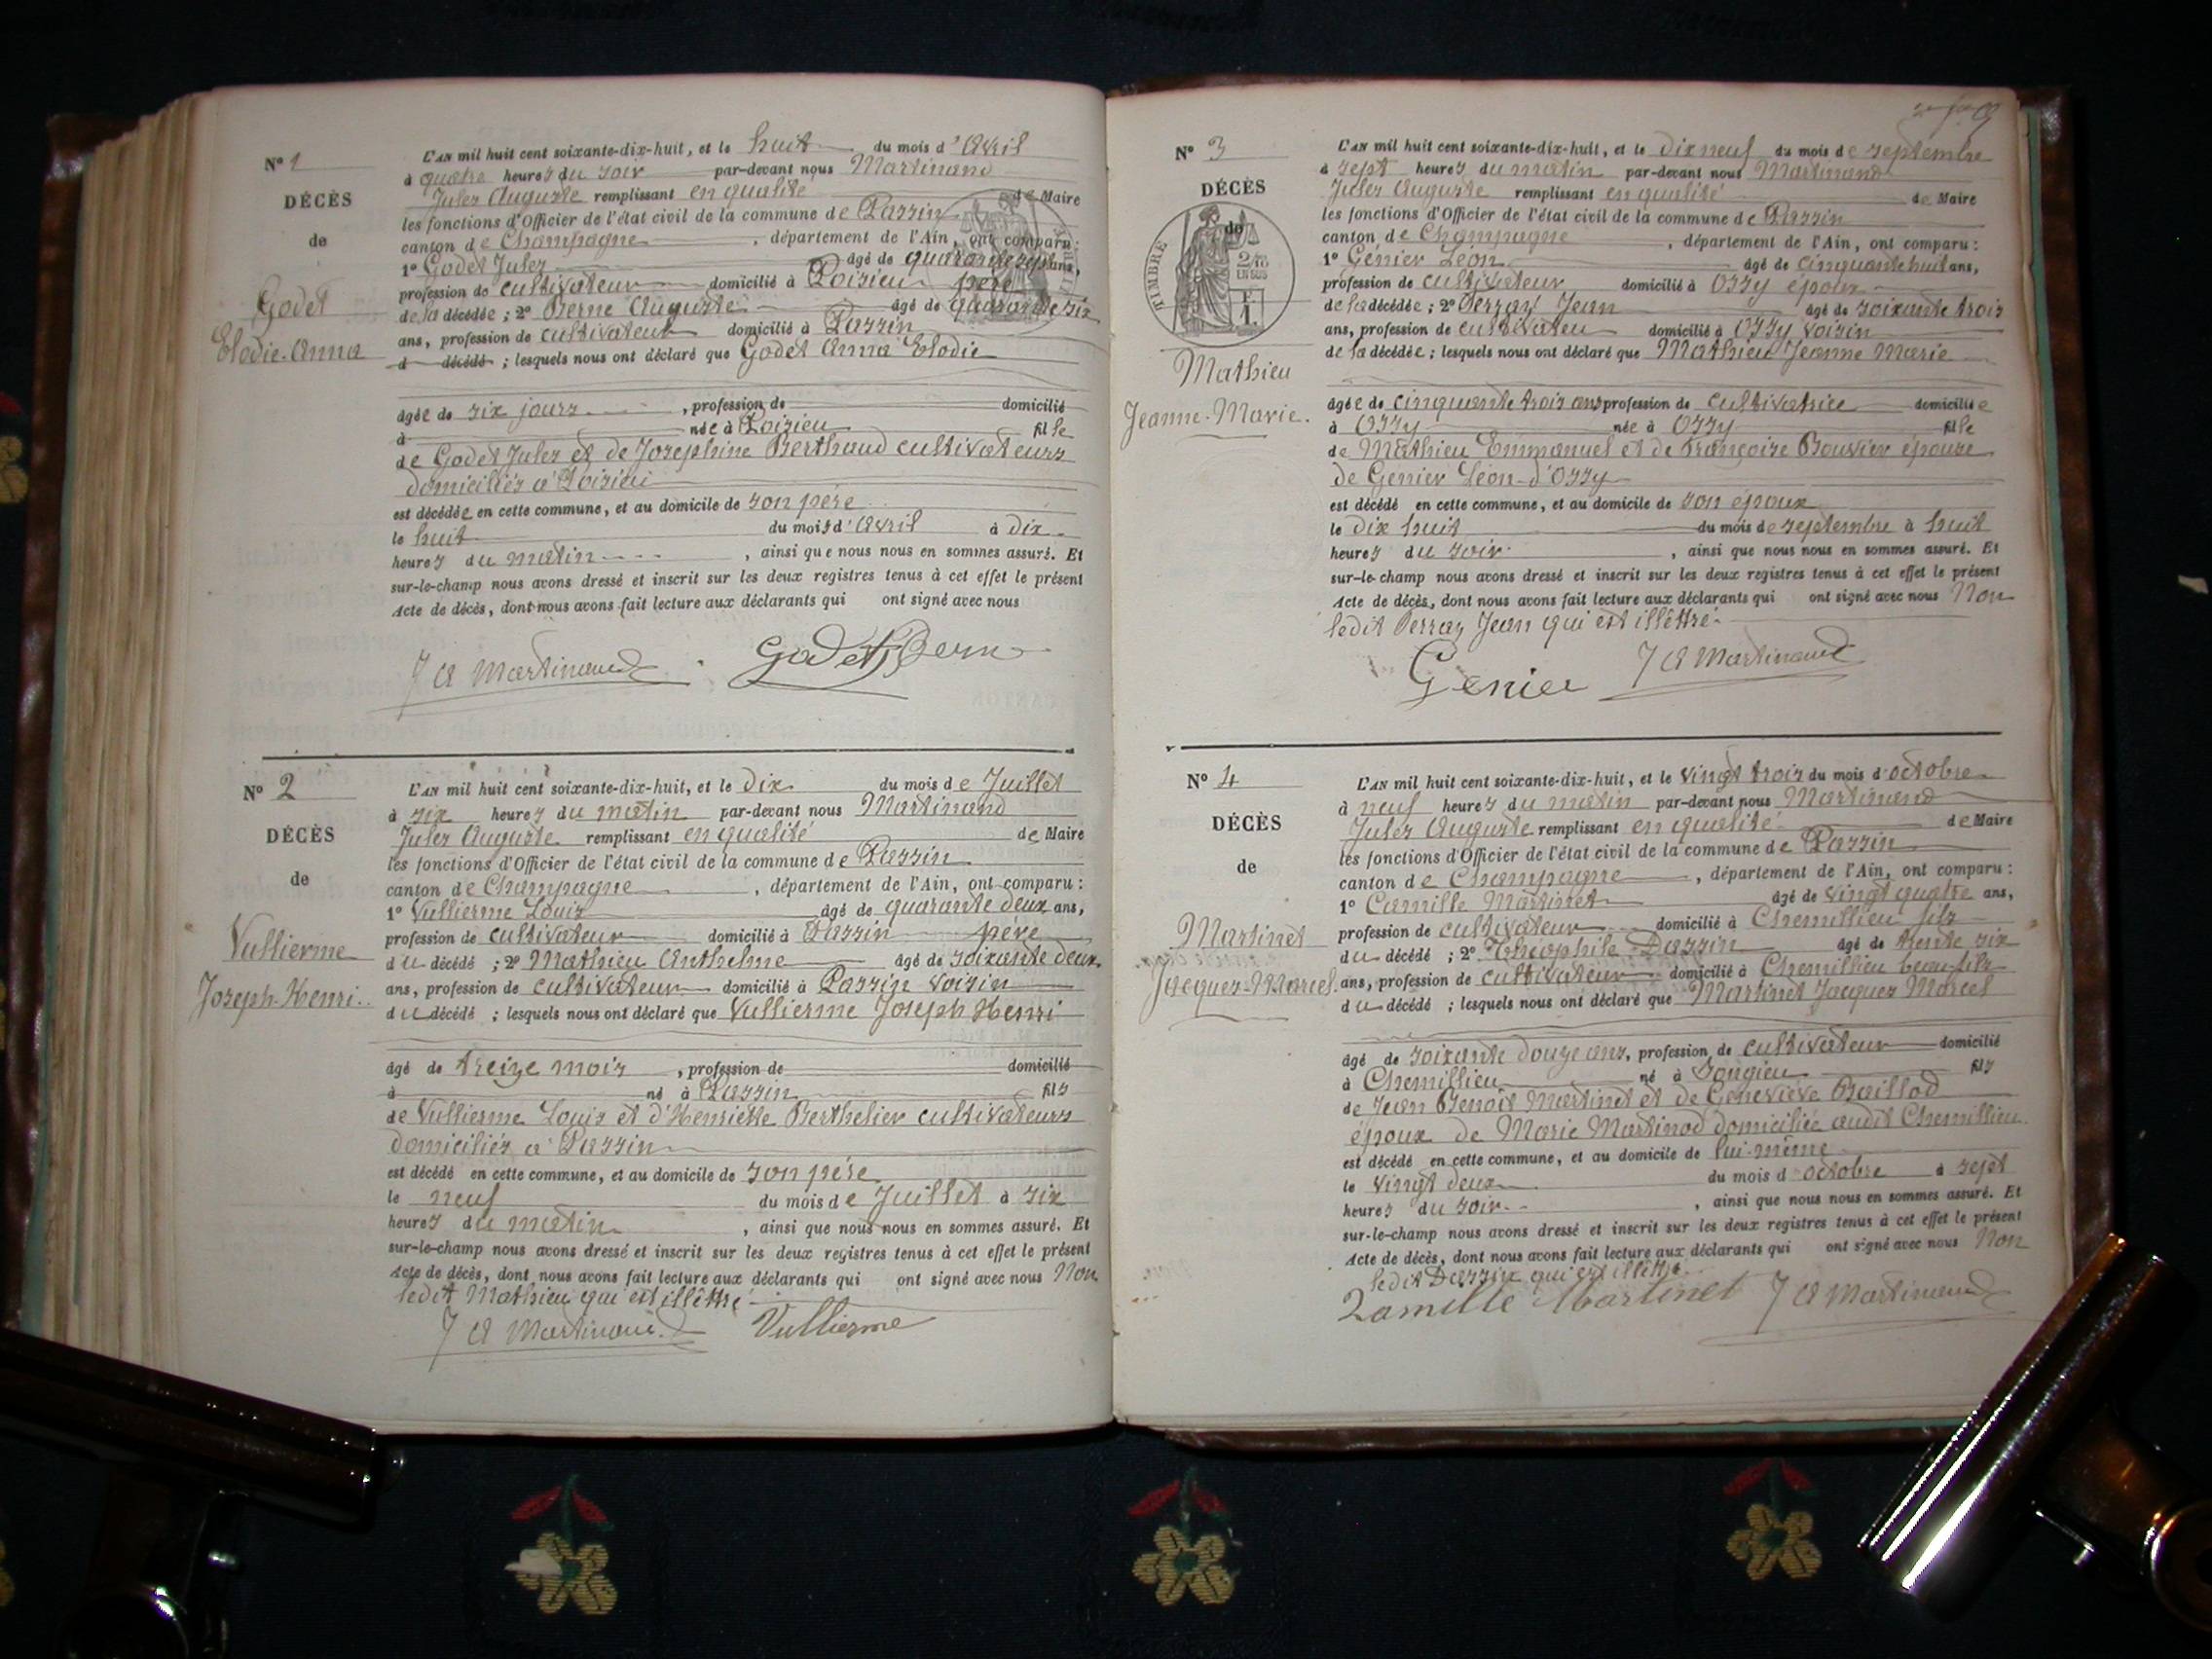 Nº 1
DÉCÈS
de
Godet
Elodie-Anna
L'AN mil huit cent soixante-dix-huit, et le huit du mois d'Avril
à quatre heures du soir par-devant nous Martinand
Jules Auguste remplissant en qualité de Maire
les fonctions d'Officier de l'état civil de la commune de Passin
canton de Champagne, département de l'Ain, ont comparu :
1º Godet Jules âgé de quarante sept ans,
profession de cultivateur domicilié à Poisieu père
de la décédée ; 2º Berne Auguste âgé de quarante six
ans, profession de cultivateur domicilié à Passin
d décédé ; lesquels nous ont déclaré que Godet Anna Elodie
âgée de six jours, profession de domicilié
à née à Poisieu fille
de Godet Jules et de Josephine Berthaud cultivateurs
domiciliés à Poisieu
est décédée en cette commune, et au domicile de son père
le huit du mois d'Avril à dix
heures du matin, ainsi que nous nous en sommes assuré. Et
sur-le-champ nous avons dressé et inscrit sur les deux registres tenus à cet effet le présent
Acte de décès, dont nous avons fait lecture aux déclarants qui ont signé avec nous
J A Martinand Godet Bern
Nº 2
DÉCÈS
de
Vullierme
Joseph-Henri.
L'AN mil huit cent soixante-dix-huit, et le dix du mois de Juillet
à six heures du matin par-devant nous Martinand
Jules Auguste remplissant en qualité de Maire
les fonctions d'Officier de l'état civil de la commune de Passin
canton de Champagne, département de l'Ain, ont comparu :
1º Vullierme Louis âgé de quarante deux ans,
profession de cultivateur domicilié à Passin père
du décédé ; 2º Mathieu Anthelme âgé de soixante deux
ans, profession de cultivateur domicilié à Passin voisin
du décédé ; lesquels nous ont déclaré que Vullierme Joseph Henri
âgé de treize mois, profession de domicilié
à né à Passin fils
de Vullierme Louis et d'Henriette Berthelier cultivateurs
domiciliés à Passin
est décédé en cette commune, et au domicile de son père
le neuf du mois de Juillet à six
heures du matin, ainsi que nous nous en sommes assuré. Et
sur-le-champ nous avons dressé et inscrit sur les deux registres tenus à cet effet le présent
Acte de décès, dont nous avons fait lecture aux déclarants qui ont signé avec nous Non
ledit Mathieu qui est illêttré
J A Martinand Vullierme
Nº 3
DÉCÈS
de
TIMBRE
2/10
EN SUS
F
1.
Mathieu
Jeanne-Marie.
L'AN mil huit cent soixante-dix-huit, et le dix neuf du mois de septembre
à sept heures du matin par-devant nous Martinand
Jules Auguste remplissant en qualité de Maire
les fonctions d'Officier de l'état civil de la commune de Passin
canton de Champagne, département de l'Ain, ont comparu :
1º Génier Léon âgé de cinquante huit ans,
profession de cultivateur domicilié à Ossy époux
de la décédée ; 2º Perray Jean âgé de soixante trois
ans, profession de cultivateu domicilié à Ossy voisin
de la décédée ; lesquels nous ont déclaré que Mathieu Jeanne Marie
âgée de cinquante trois ans profession de cultivatrice domiciliée
à Ossy née à Ossy fille
de Mathieu Emmanuel et de Françoise Bouvier épouse
de Genier Léon d'Ossy
est décédé en cette commune, et au domicile de son époux
le dix huit du mois de septembre à huit
heures du soir, ainsi que nous nous en sommes assuré. Et
sur-le-champ nous avons dressé et inscrit sur les deux registres tenus à cet effet le présent
Acte de décès, dont nous avons fait lecture aux déclarants qui ont signé avec nous Non
ledit Perray Jean qui est illêttré.
Genier J A Martinand
Nº 4
DÉCÈS
de
Martinet
Jacques-Marcel.
L'AN mil huit cent soixante-dix-huit, et le vingt trois du mois d'octobre
à neuf heures du matin par-devant nous Martinand
Jules Auguste remplissant en qualité de Maire
les fonctions d'Officier de l'état civil de la commune de Passin
canton de Champagne, département de l'Ain, ont comparu :
1º Camille Martinet âgé de vingt quatre ans,
profession de cultivateur domicilié à Chemillieu fils
du décédé ; 2º Théophile Dassin âgé de trente six
ans, profession de cultivateur domicilié à Chemillieu beau-fils
du décédé ; lesquels nous ont déclaré que Martinet Jacques Marcel
âgé de soixante douze ans, profession de cultivateur domicilié
à Chemillieu né à Songieu fils
de Jean Benoit Martinet et de Geneviève Baillod
époux de Marie Martinod domiciliée audit Chemillieu.
est décédé en cette commune, et au domicile de lui-même
le vingt deux du mois d'octobre à sept
heures du soir, ainsi que nous nous en sommes assuré. Et
sur-le-champ nous avons dressé et inscrit sur les deux registres tenus à cet effet le présent
Acte de décès, dont nous avons fait lecture aux déclarants qui ont signé avec nous Non
ledit Dassin qui est illêttré.
Camille Martinet J A Martinand